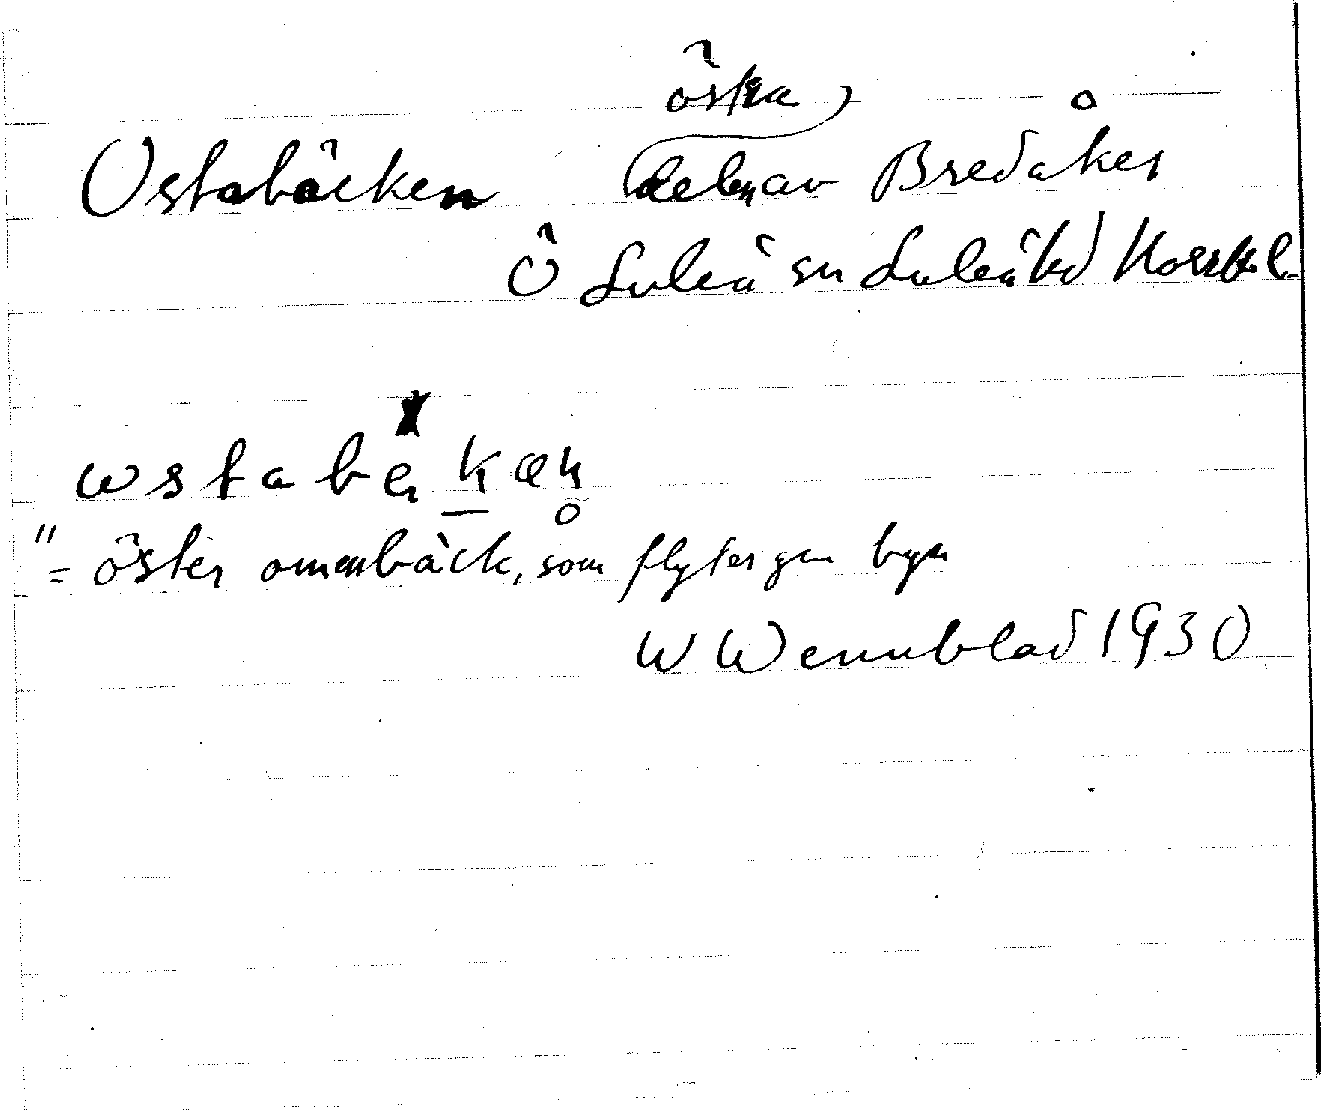 östra
Ostabäcken delen av Bredåker
Ö Luleå sn Luleå td Norrb l.
wstabäkæn
"= öster om en bäck, som flyter gm byn
W Wennblad 1930